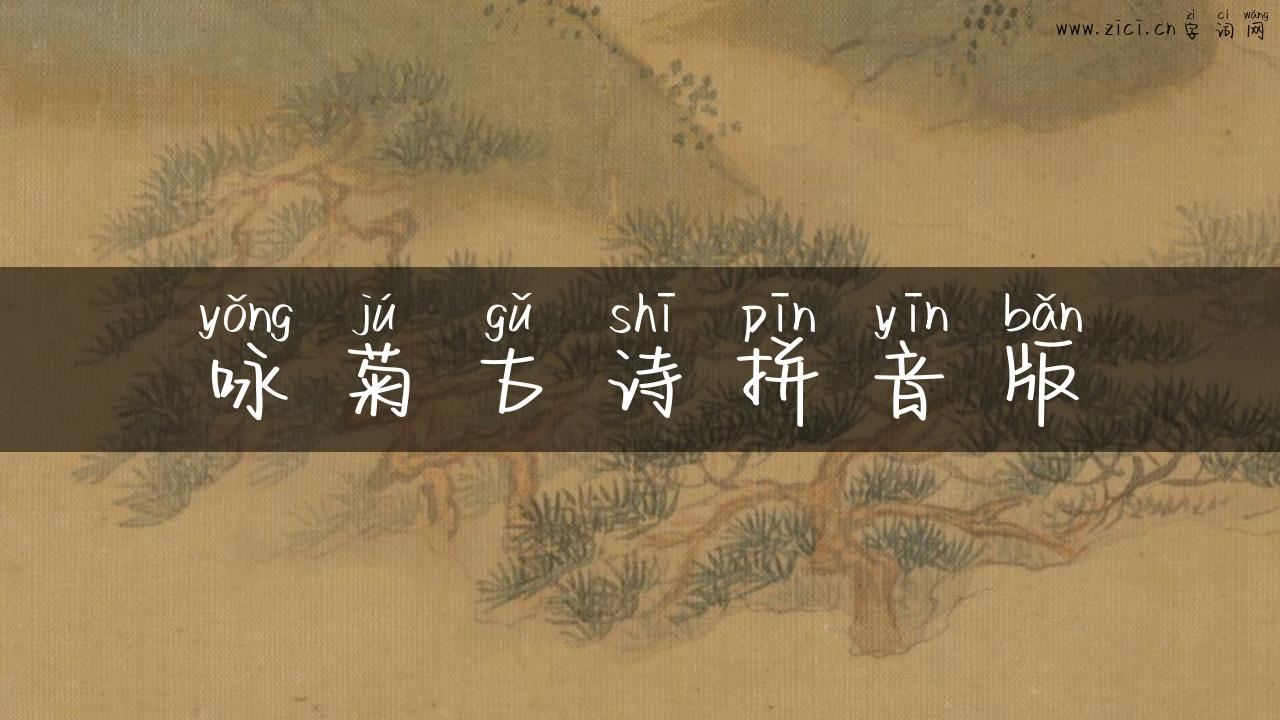 zì cí wǎng
www.zici.cn 字词网
yǒng jú gǔ shī pīn yīn bǎn
咏菊古诗拼音版